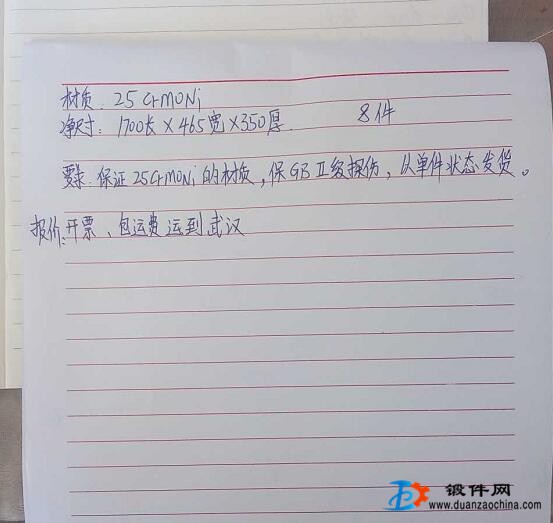 材质: 25CrMoNi
净尺寸: 1700长×465宽×350厚. 8件
要求: 保证25CrMoNi的材质, 保GBⅡ级探伤, 以单件状态发货。
报价: 开票、包运费运到武汉
锻件网
www.duanzaochina.com